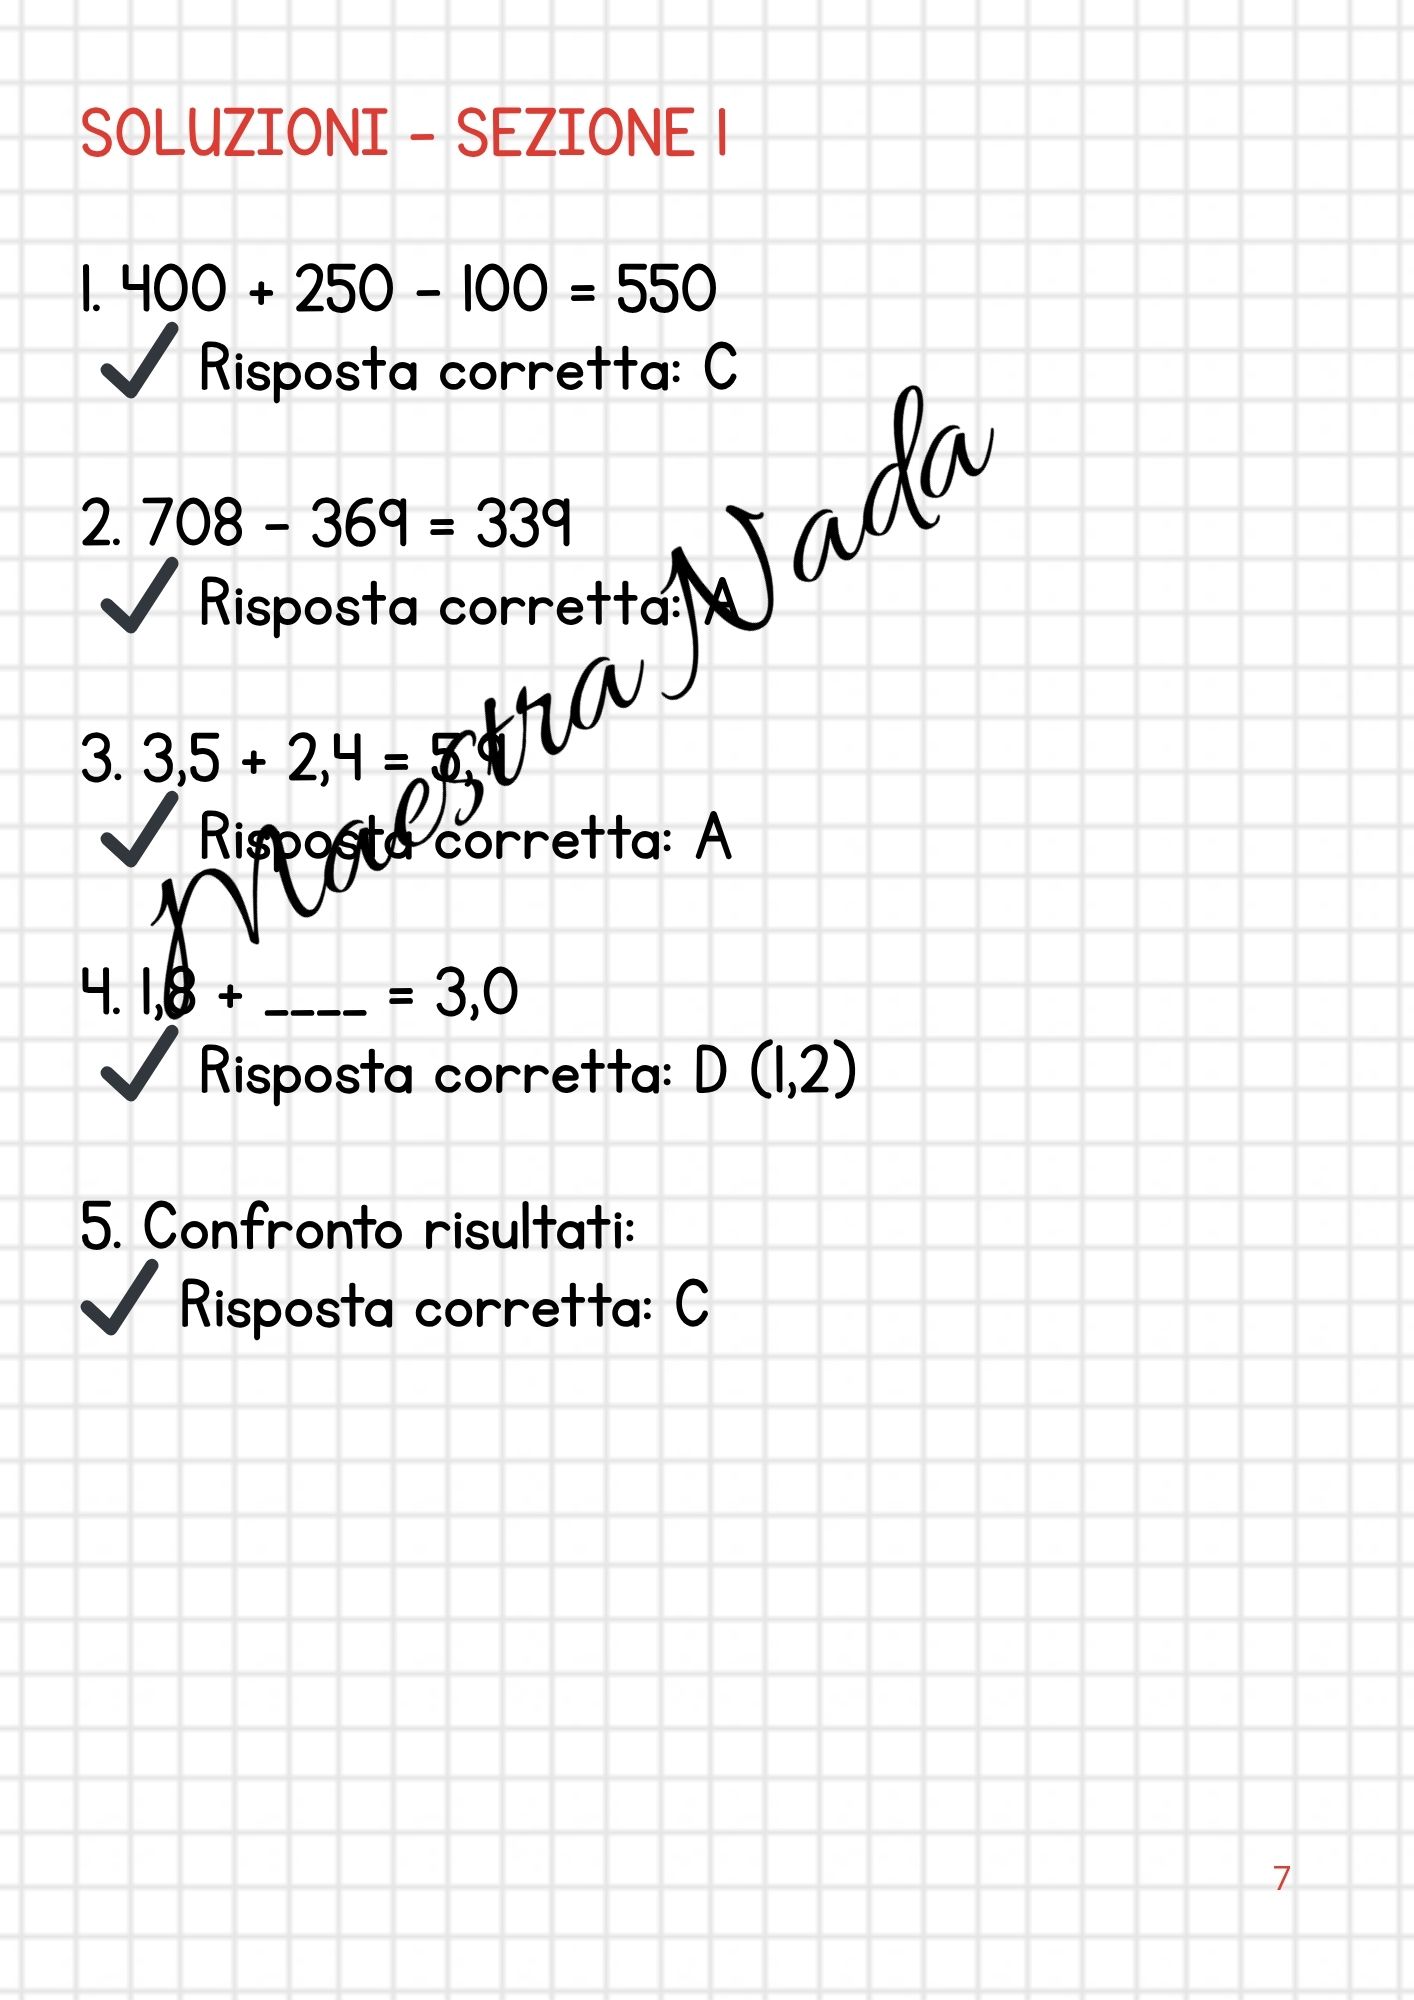 SOLUZIONI - SEZIONE 1
1. 400 + 250 - 100 = 550
Risposta corretta: C
2. 708 - 369 = 339
Risposta corretta: A
3. 3,5 + 2,4 = 5,9
Risposta corretta: A
4. 1,8 + ____ = 3,0
Risposta corretta: D (1,2)
5. Confronto risultati:
Risposta corretta: C
Maestra Nada
7